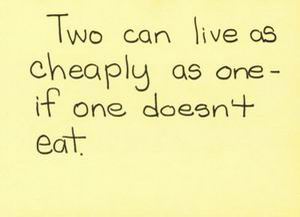 Two can live as
cheaply as one-
if one doesn't
eat.